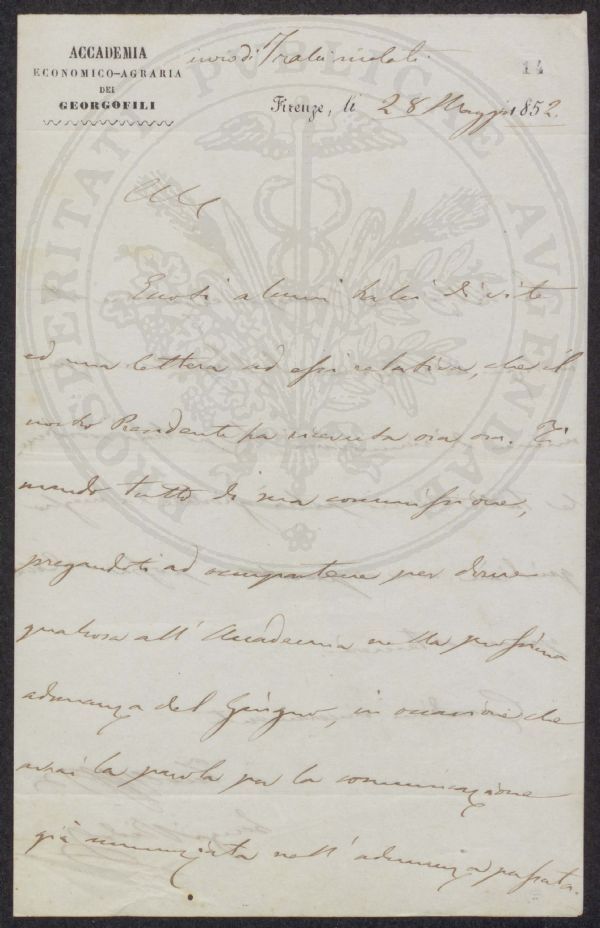 ACCADEMIA
ECONOMICO-AGRARIA
DEI
GEORGOFILI
invio di Tralci malati
14
Firenze, li 28 Maggio 1852.
Eccoti alcuni tralci di vite
ed una lettera ad essi relativa, che il
nostro Presidente ha ricevuta ora ora. Ti
mando tutto di sua commissione,
pregandoti ad occupartene per dirne
qualcosa all' Accademia nella prossima
adunanza del Giugno, in occasione che
avrai la parola per la comunicazione
già annunziata nell' adunanza passata.
PROSPERITATI PVBLICAE AVGENDAE